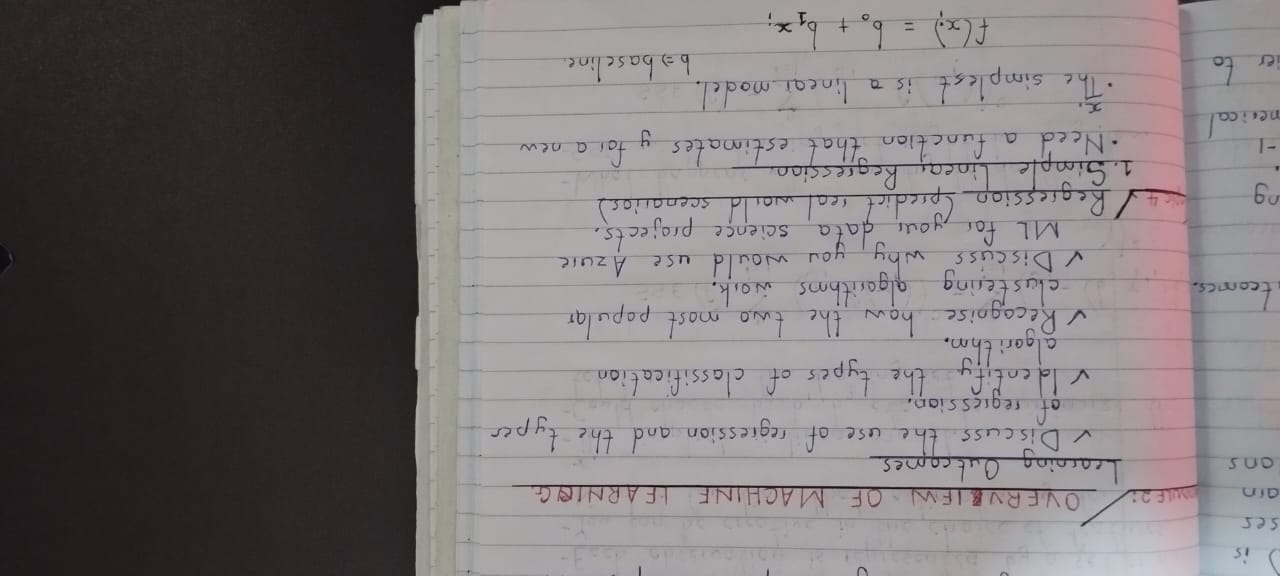 MODULE 2: OVERVIEW OF MACHINE LEARNING
Learning Outcomes
✓ Discuss the use of regression and the types
of regression.
✓ Identify the types of classification
algorithm.
✓ Recognise how the two most popular
clustering algorithms work.
✓ Discuss why you would use Azure
ML for your data science projects.
Regression (predict real world scenarios)
1. Simple Linear Regression.
• Need a function that estimates y for a new
x.
• The simplest is a linear model.
b => baseline.
f(xᵢ) = b₀ + b₁xᵢ